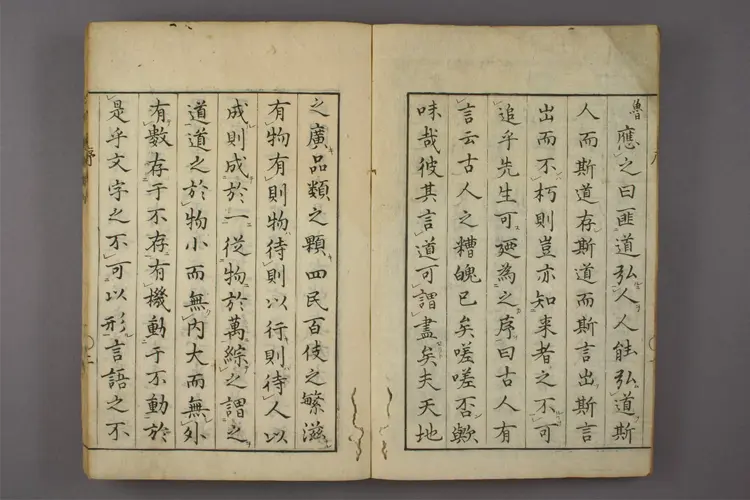 魯應之曰匪道弘人人能弘道斯
人而斯道存斯道而斯言出斯言
出而不朽則豈亦知来者之不可
追乎先生可為之序曰古人有
言云古人之糟魄已矣嗟嗟否歟
味哉彼其言道可謂盡矣夫天地
之廣品類之顆四民百伎之繁滋
有物有則物待則以行則待人以
成則成於一従物於萬綜之謂之
道道之於物小而無内大而無外
有數存于不存有機動于不動於
是乎文字之不可以形言語之不
序
二